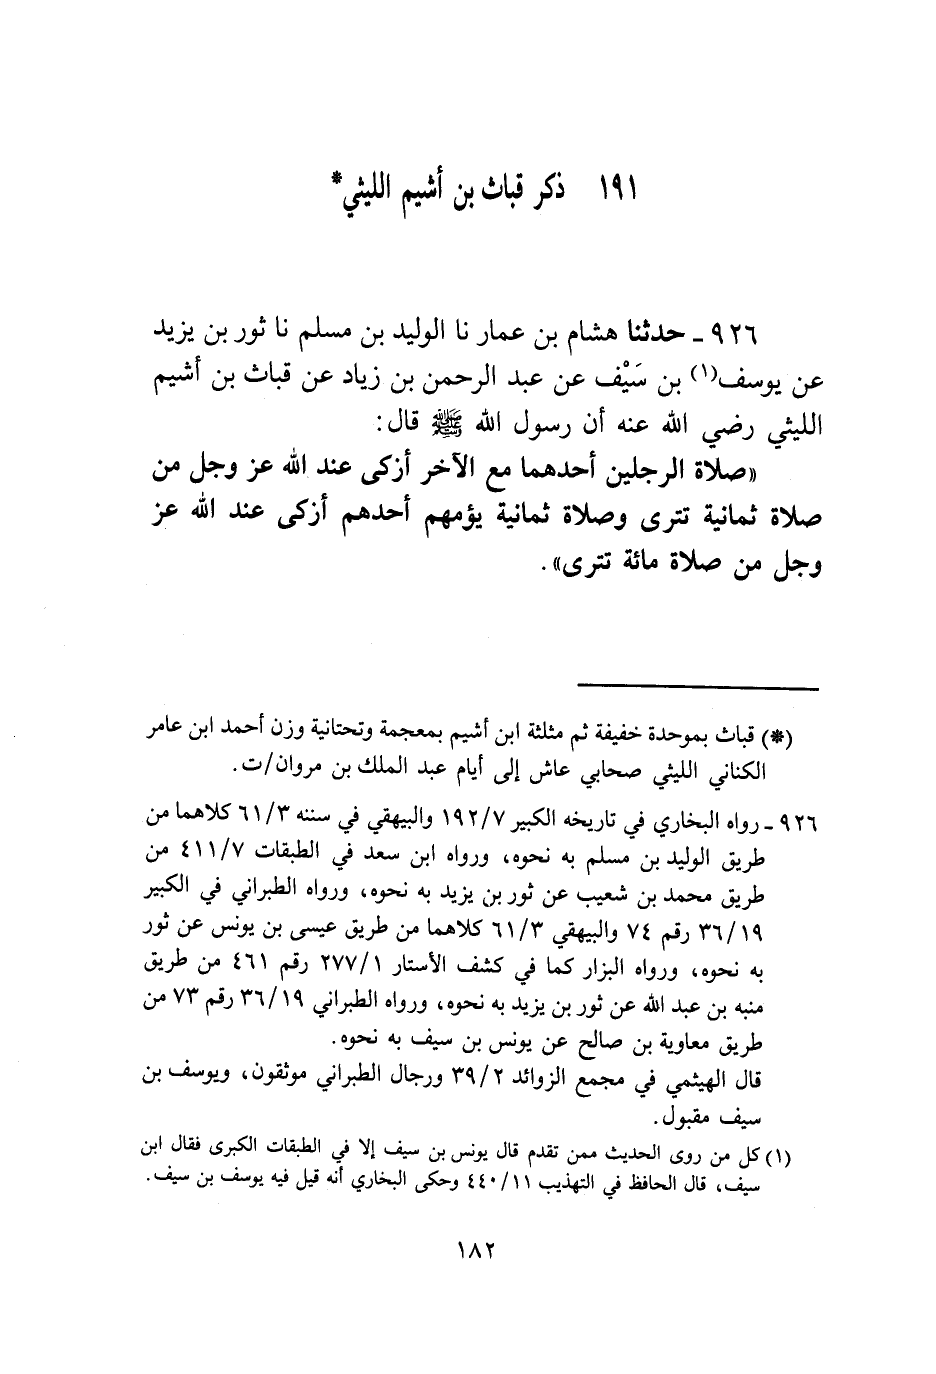 ١٩١ ذكر قباث بن أشيم الليثي*
٩٢٦ ـ حدثنا هشام بن عمار نا الوليد بن مسلم نا ثور بن يزيد
عن يوسف(١) بن سَيْف عن عبد الرحمن بن زياد عن قباث بن أشيم
الليثي رضي الله عنه أن رسول الله ﷺ قال:
«صلاة الرجلين أحدهما مع الآخر أزكى عند الله عز وجل من
صلاة ثمانية تترى وصلاة ثمانية يؤمهم أحدهم أزكى عند الله عز
وجل من صلاة مائة تترى».
(*) قباث بموحدة خفيفة ثم مثلثة ابن أشيم بمعجمة وتحتانية وزن أحمد ابن عامر
الكناني الليثي صحابي عاش إلى أيام عبد الملك بن مروان/ت.
٩٢٦ ـ رواه البخاري في تاريخه الكبير ١٩٢/٧ والبيهقي في سننه ٦١/٣ كلاهما من
طريق الوليد بن مسلم به نحوه، ورواه ابن سعد في الطبقات ٤١١/٧ من
طريق محمد بن شعيب عن ثور بن يزيد به نحوه، ورواه الطبراني في الكبير
٣٦/١٩ رقم ٧٤ والبيهقي ٦١/٣ كلاهما من طريق عيسى بن يونس عن ثور
به نحوه، ورواه البزار كما في كشف الأستار ٢٧٧/١ رقم ٤٦١ من طريق
منبه بن عبد الله عن ثور بن يزيد به نحوه، ورواه الطبراني ٣٦/١٩ رقم ٧٣ من
طريق معاوية بن صالح عن يونس بن سيف به نحوه.
قال الهيثمي في مجمع الزوائد ٣٩/٢ ورجال الطبراني موثقون، ويوسف بن
سيف مقبول.
(١) كل من روى الحديث ممن تقدم قال يونس بن سيف إلا في الطبقات الكبرى فقال ابن
سيف، قال الحافظ في التهذيب ٤٤٠/١١ وحكى البخاري أنه قيل فيه يوسف بن سيف.
١٨٢